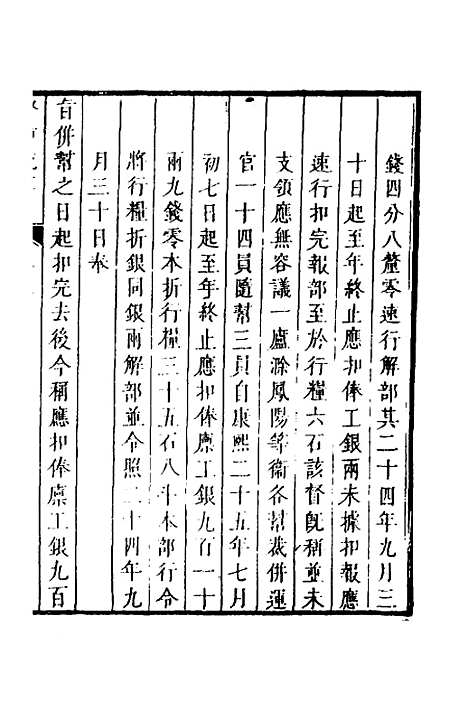 錢四分八釐零速行解部其二十四年九月三
十日起至年終止應扣俸工銀兩未據扣報應
速行扣完報部至於行糧六石該督旣稱並未
支領應無容議一廬滁鳳陽等衞各幫裁併運
官一十四員隨幫三員自康熙二十五年七月
初七日起至年終止應扣俸廩工銀九百一十
兩九錢零本折行糧三十五石八斗本部行令
將行糧折銀同銀兩解部並令照二十四年九
月三十日奉
旨併幫之日起扣完去後今稱應扣俸廩工銀九百